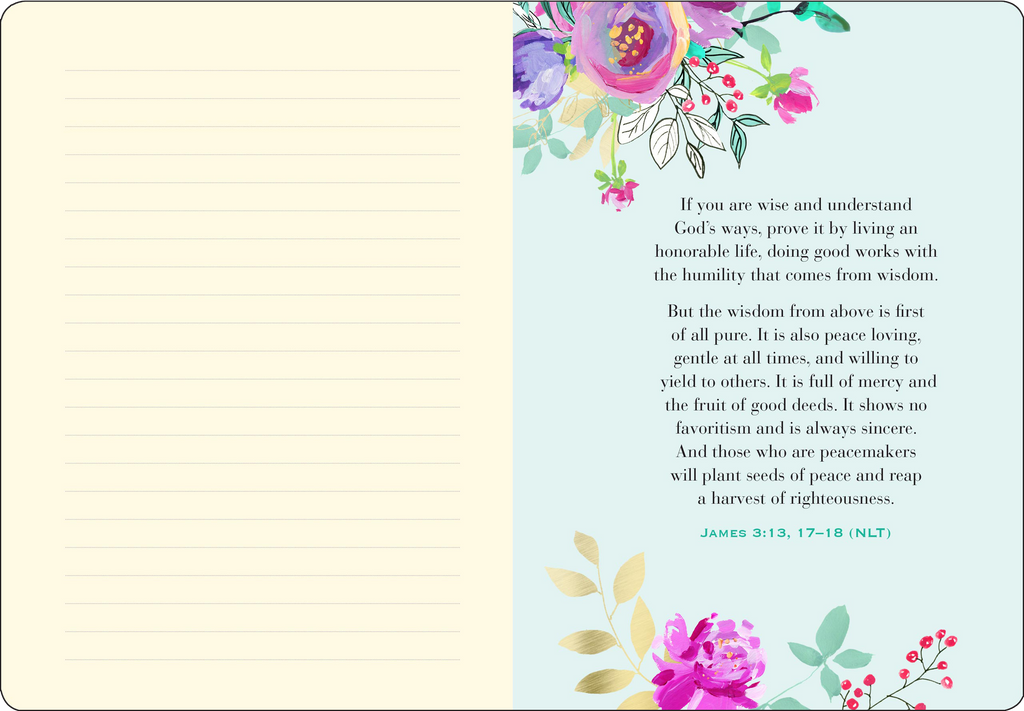 If you are wise and understand
God's ways, prove it by living an
honorable life, doing good works with
the humility that comes from wisdom.
But the wisdom from above is first
of all pure. It is also peace loving,
gentle at all times, and willing to
yield to others. It is full of mercy and
the fruit of good deeds. It shows no
favoritism and is always sincere.
And those who are peacemakers
will plant seeds of peace and reap
a harvest of righteousness.
James 3:13, 17–18 (NLT)